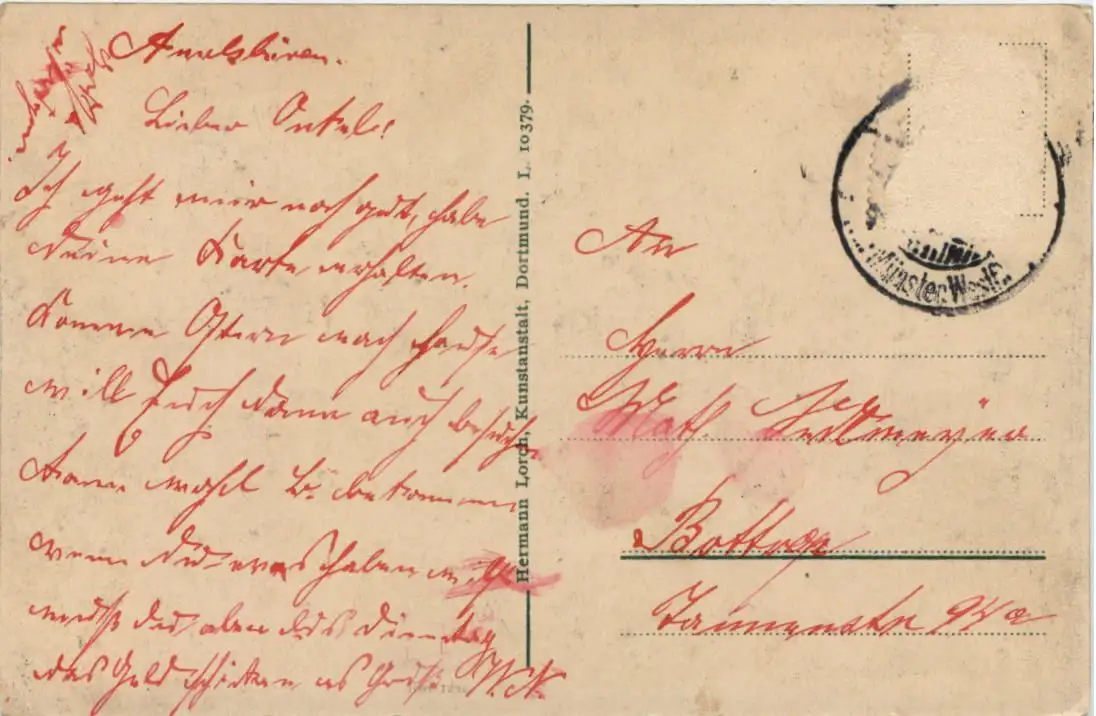 Amelsbüren.
Lieber Onkel!
Ich geht mir noch gut, habe
Deine Karte erhalten.
Komme Ostern nach Hause
will Euch dann auch besuchen
kann wohl bekommen
wenn Du was haben willst
mußt du aber bis Dienstag
das Geld schicken es grüßt W.N.
Hermann Lorch, Kunstanstalt, Dortmund. L. 10379.
Münster Westf.
An
Herrn
Math.
Bottrop